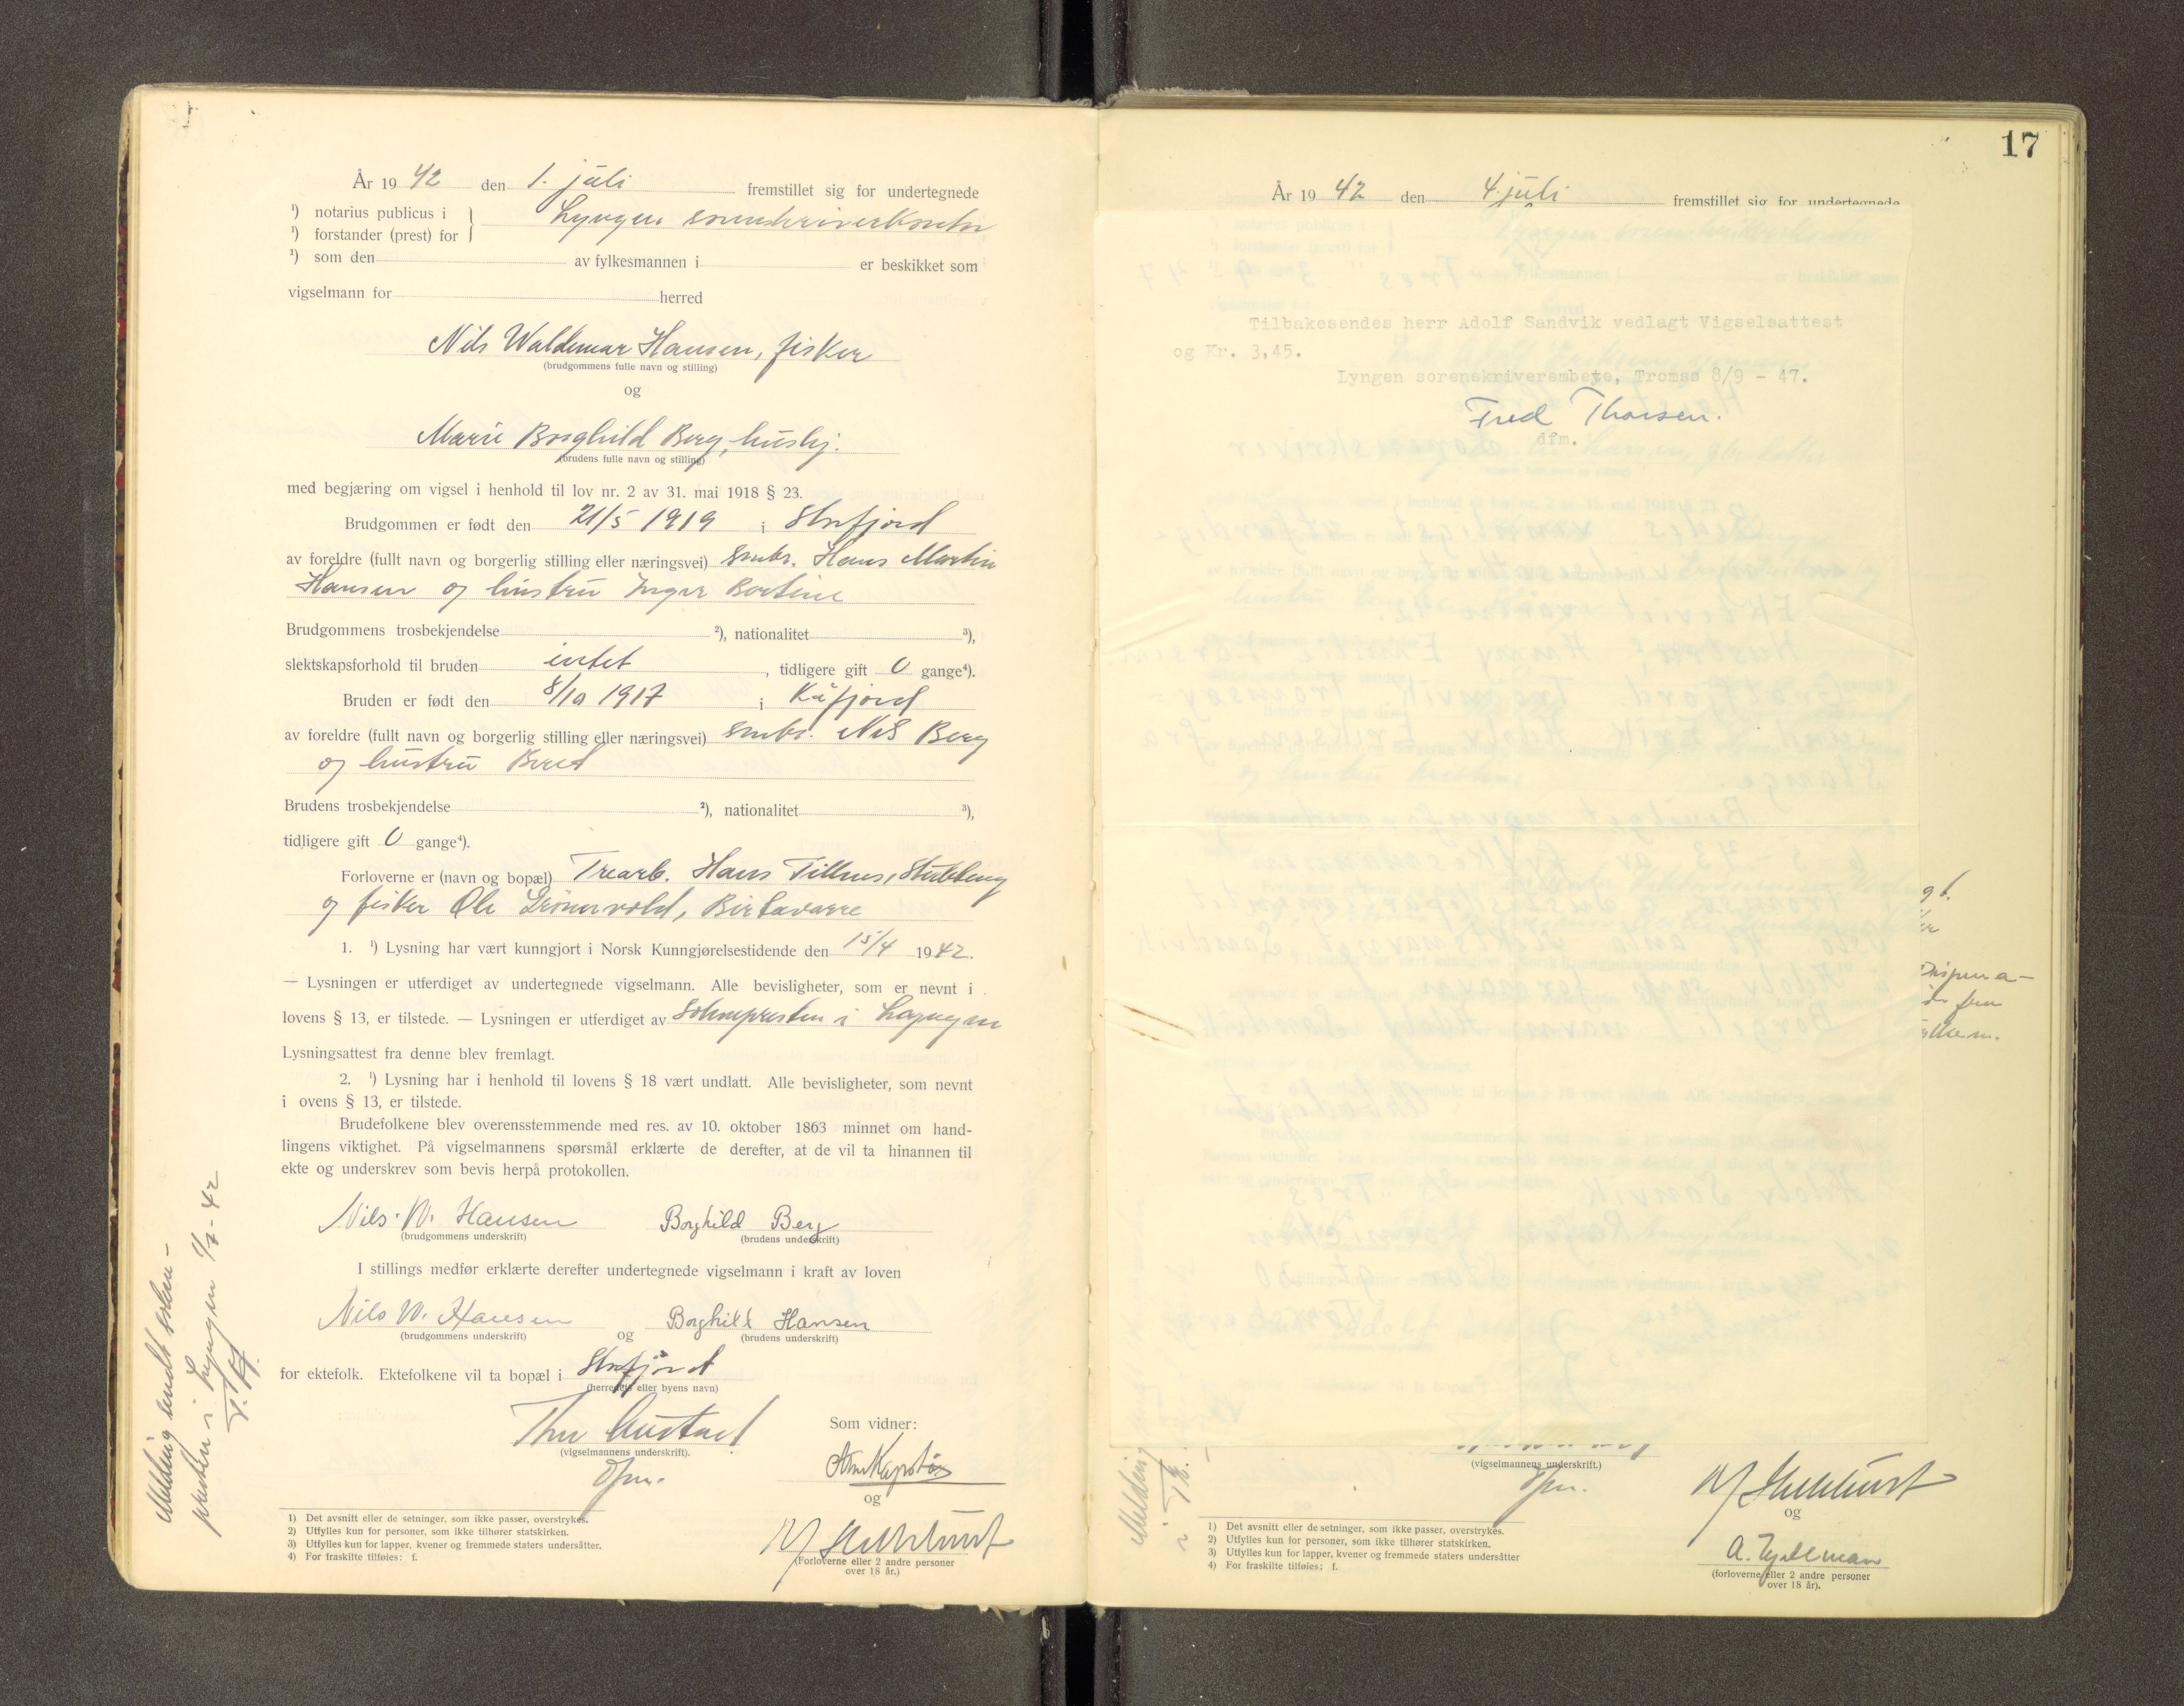 År 19 42 den 1. juli fremstillet sig for undertegnede
¹) notarius publicus i } Lyngen sorenskriverkontor
¹) forstander (prest) for
¹) som den av fylkesmannen i er beskikket som
vigselmann for herred
Nils Waldemar Hansen, fisker
(brudgommens fulle navn og stilling)
og
Marie Borghild Berg, hushj.
(brudens fulle navn og stilling)
med begjæring om vigsel i henhold til lov nr. 2 av 31. mai 1918 § 23.
Brudgommen er født den 21/5 1919 i Storfjord
av foreldre (fullt navn og borgerlig stilling eller næringsvei) smbr. Hans Martin
Hansen og hustru Inger Bertine
Brudgommens trosbekjendelse ²), nationalitet ³),
slektskapsforhold til bruden intet, tidligere gift 0 gange⁴).
Bruden er født den 8/10 1917 i Kåfjord
av foreldre (fullt navn og borgerlig stilling eller næringsvei) smbr. Nils Berg
og hustru Berit
Brudens trosbekjendelse ²), nationalitet ³),
tidligere gift 0 gange⁴).
Forloverne er (navn og bopæl) Trearb. Hans
og fisker Ole Grønnvold, Birtavarre
1. ¹) Lysning har vært kunngjort i Norsk Kunngjørelsestidende den 15/4 1942.
— Lysningen er utferdiget av undertegnede vigselmann. Alle bevisligheter, som er nevnt i
lovens § 13, er tilstede. — Lysningen er utferdiget av Soknepresten i Lyngen
Lysningsattest fra denne blev fremlagt.
2. ¹) Lysning har i henhold til lovens § 18 vært undlatt. Alle bevisligheter, som nevnt
i ovens § 13, er tilstede.
Brudefolkene blev overensstemmende med res. av 10. oktober 1863 minnet om hand-
lingens viktighet. På vigselmannens spørsmål erklærte de derefter, at de vil ta hinannen til
ekte og underskrev som bevis herpå protokollen.
Nils. W. Hansen Borghild Berg
(brudgommens underskrift) (brudens underskrift)
I stillings medfør erklærte derefter undertegnede vigselmann i kraft av loven
Nils W. Hansen og Borghild Hansen
(brudgommens underskrift) (brudens underskrift)
for ektefolk. Ektefolkene vil ta bopæl i Storfjord
(herredets eller byens navn)
Thor Gustad
(vigselmannens underskrift).
dfm.
Som vidner:
og
(Forloverne eller 2 andre personer
over 18 år.)
1) Det avsnitt eller de setninger, som ikke passer, overstrykes.
2) Utfylles kun for personer, som ikke tilhører statskirken.
3) Utfylles kun for lapper, kvener og fremmede staters undersåtter.
4) For fraskilte tilføies: f.
Melding sendt sokne-
presten i Lyngen 1/7-42
17
År 19 42 den 4. juli fremstillet sig for undertegnede
Tilbakesendes herr Adolf Sandvik vedlagt Vigselsattest
og Kr. 3,45.
Lyngen sorenskriverembete, Tromsø 8/9 - 47.
Fred Thorsen.
dfm.
(vigselmannens underskrift.)
dfm.
og
(forloverne eller 2 andre personer
over 18 år).
1) Det avsnitt eller de setninger, som ikke passer, overstrykes.
2) Utfylles kun for personer, som ikke tilhører statskirken.
3) Utfylles kun for lapper, kvener og fremmede staters undersåtter
4) For fraskilte tilføies: f.
Melding